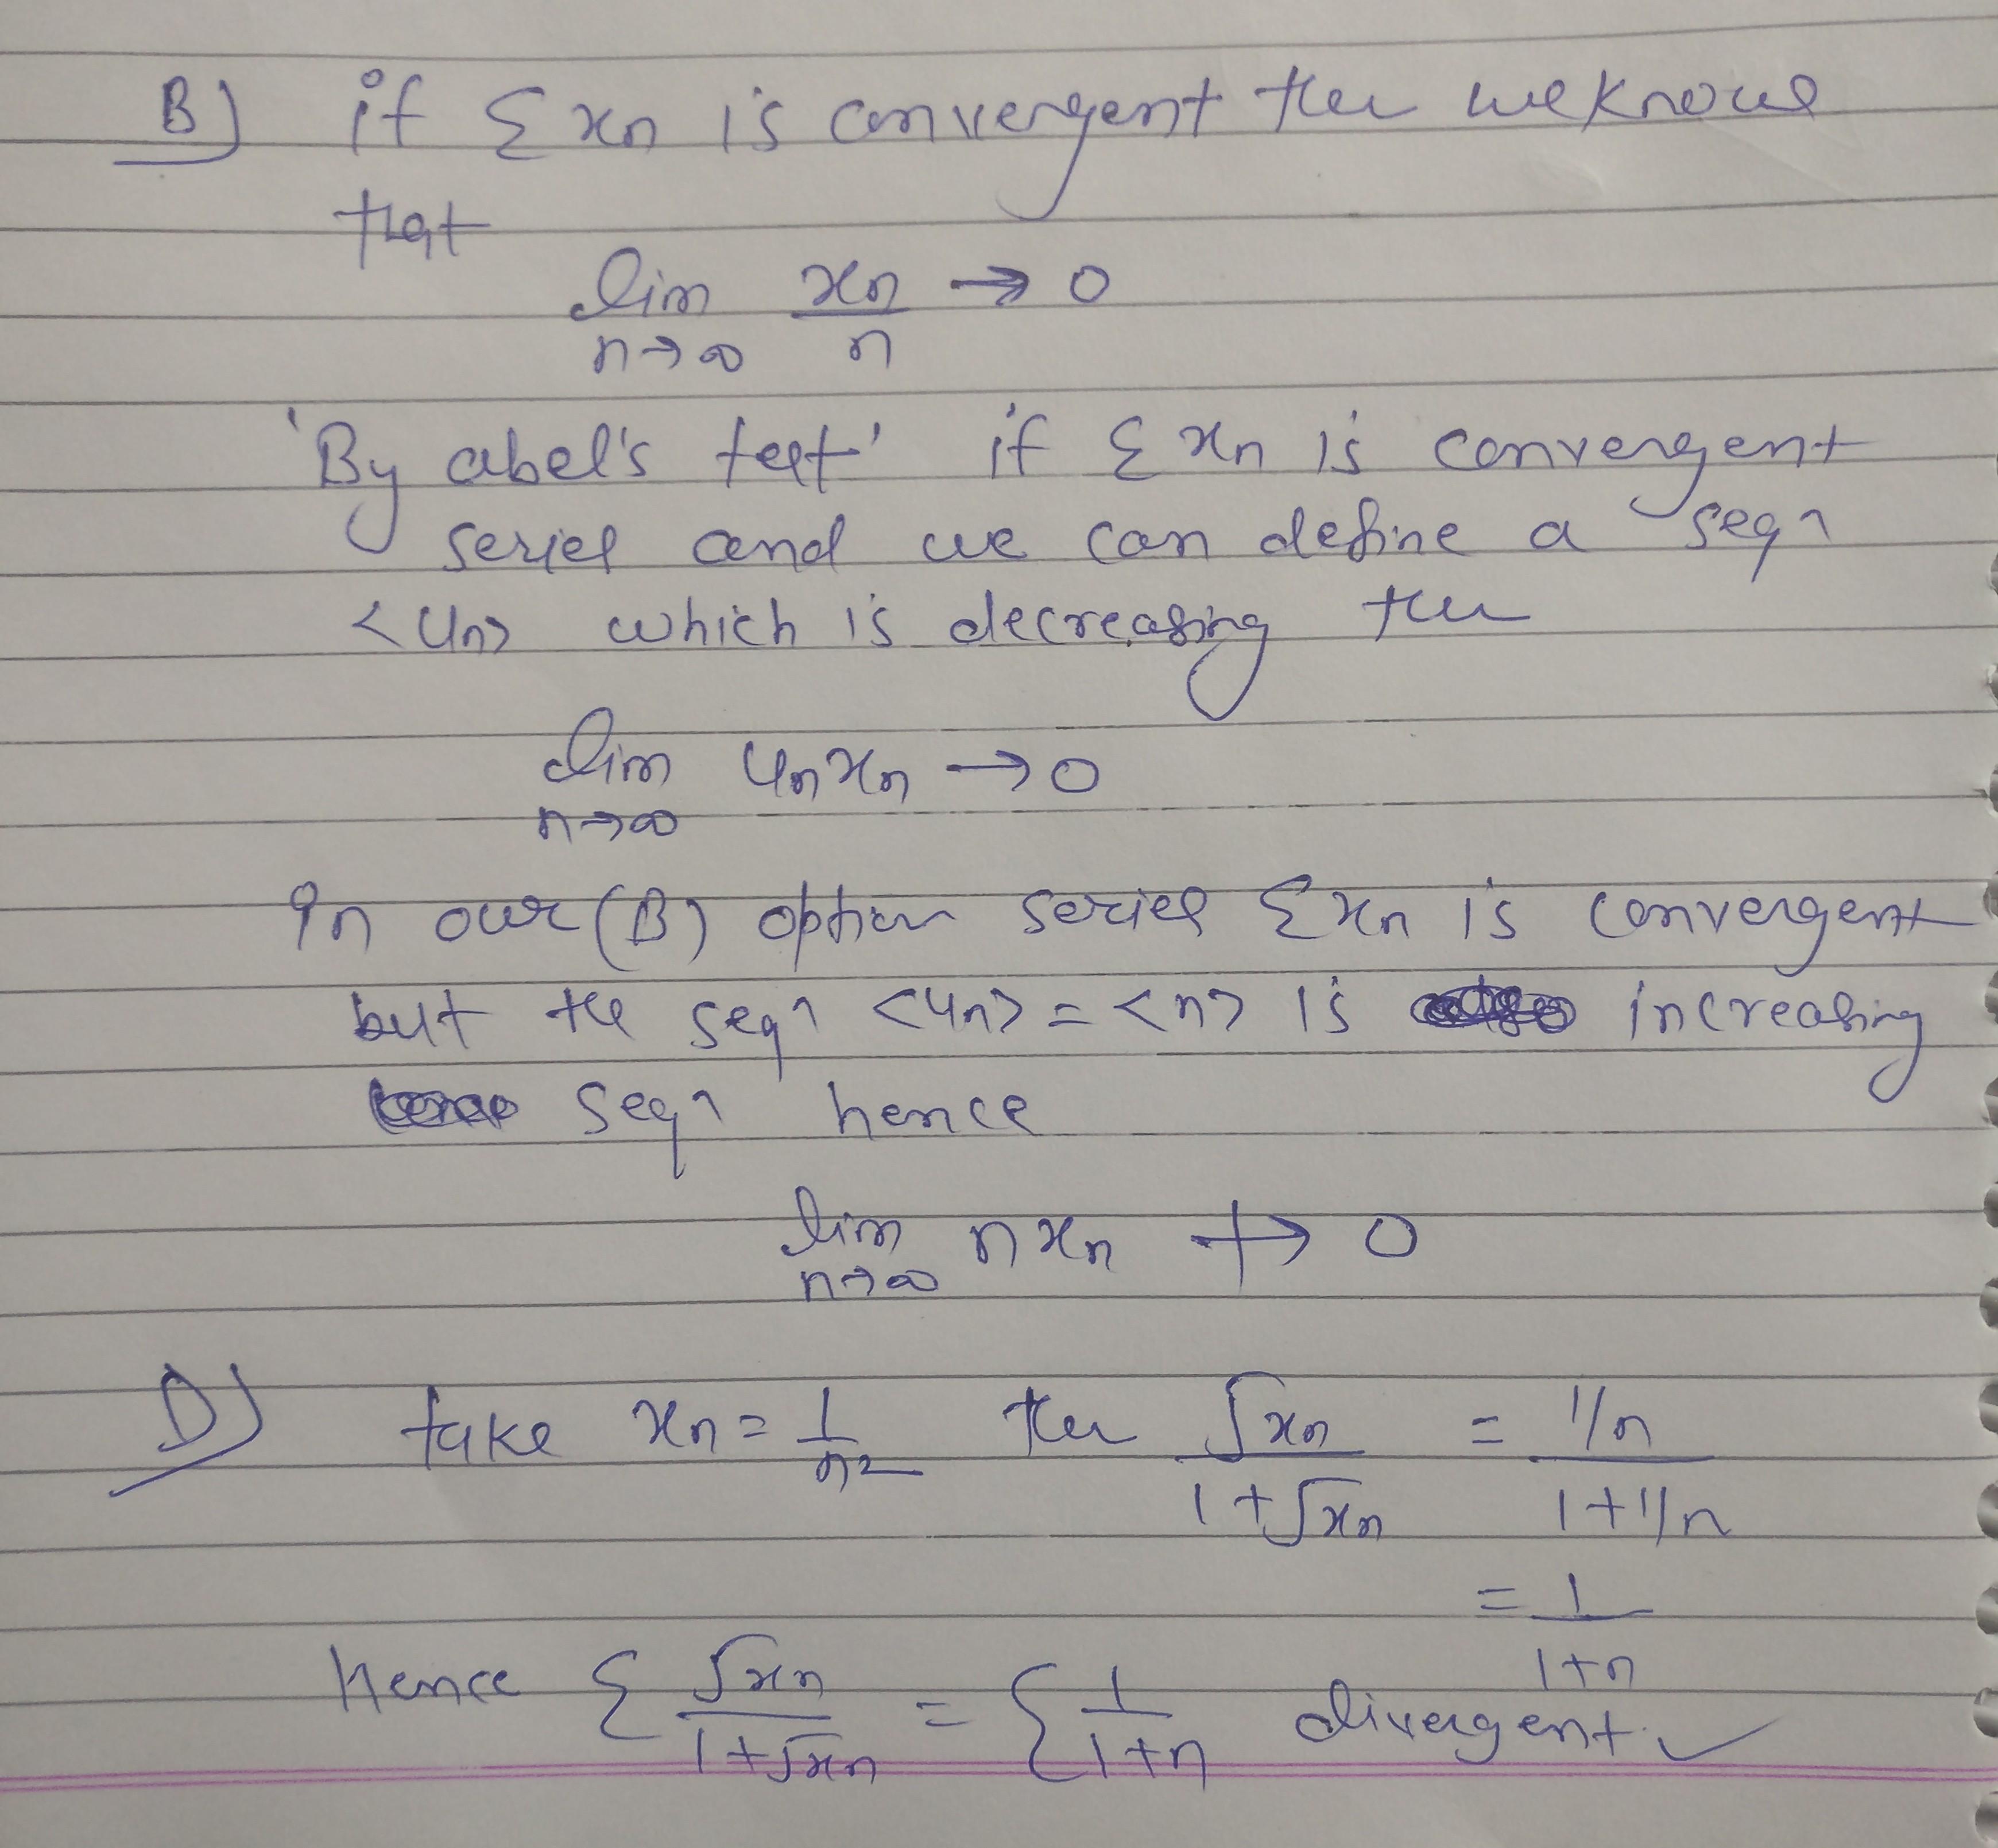 B) if Σ xn is convergent then we know
that
lim n→∞ xn/n → 0
'By abel's test' if Σ xn is convergent
series and we can define a seqn
<un> which is decreasing then
lim n→∞ un xn → 0
In our (B) option series Σxn is convergent
but the seqn <un> = <n> is increasing
seqn hence
lim n→∞ n xn ↛ 0
D) take xn = 1/n2 then √xn/1+√xn = 1/n/1+1/n
= 1/1+n
hence Σ √xn/1+√xn = Σ 1/1+n divergent ✓